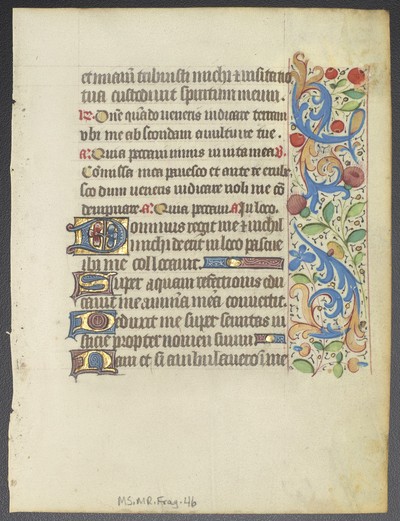 et miam tribuisti michi & visitatio
tua custodiuit spiritum meum.
R. Dñe quãdo veneris iudicare terram
vbi me abscondam a vultu ire tue.
A. Quia peccaui nimis in vita mea V.
Cõmissa mea pauesco et ante te erube
sco dum veneris iudicare noli me cõ
dempnare. A. Quia peccaui. A In loco.
Dominus regit me et nichil
michi deerit in loco pascue
ibi me collocauit.
Super aquam refectionis edu
cauit me animã meã conuertit.
Deduxit me super semitas iu
sticie propter nomen suum
Nam et si ambulauero ĩ me
MS.MR.Frag.46